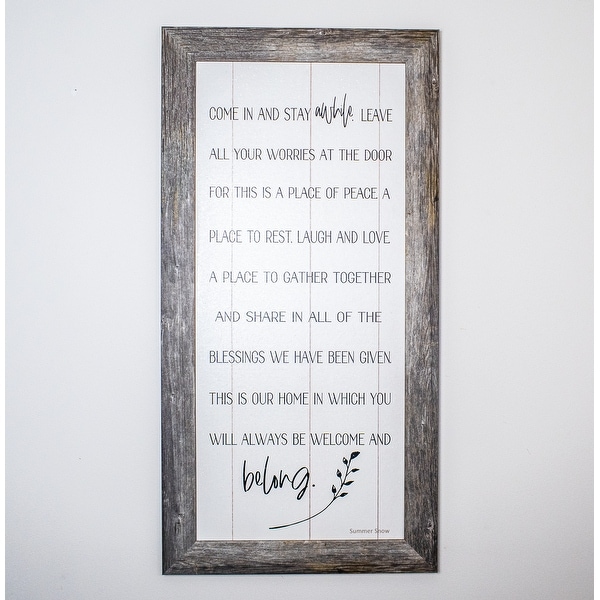 COME IN AND STAY awhile. LEAVE
ALL YOUR WORRIES AT THE DOOR
FOR THIS IS A PLACE OF PEACE. A
PLACE TO REST, LAUGH AND LOVE.
A PLACE TO GATHER TOGETHER
AND SHARE IN ALL OF THE
BLESSINGS WE HAVE BEEN GIVEN.
THIS IS OUR HOME IN WHICH YOU
WILL ALWAYS BE WELCOME AND
belong.
Summer Snow